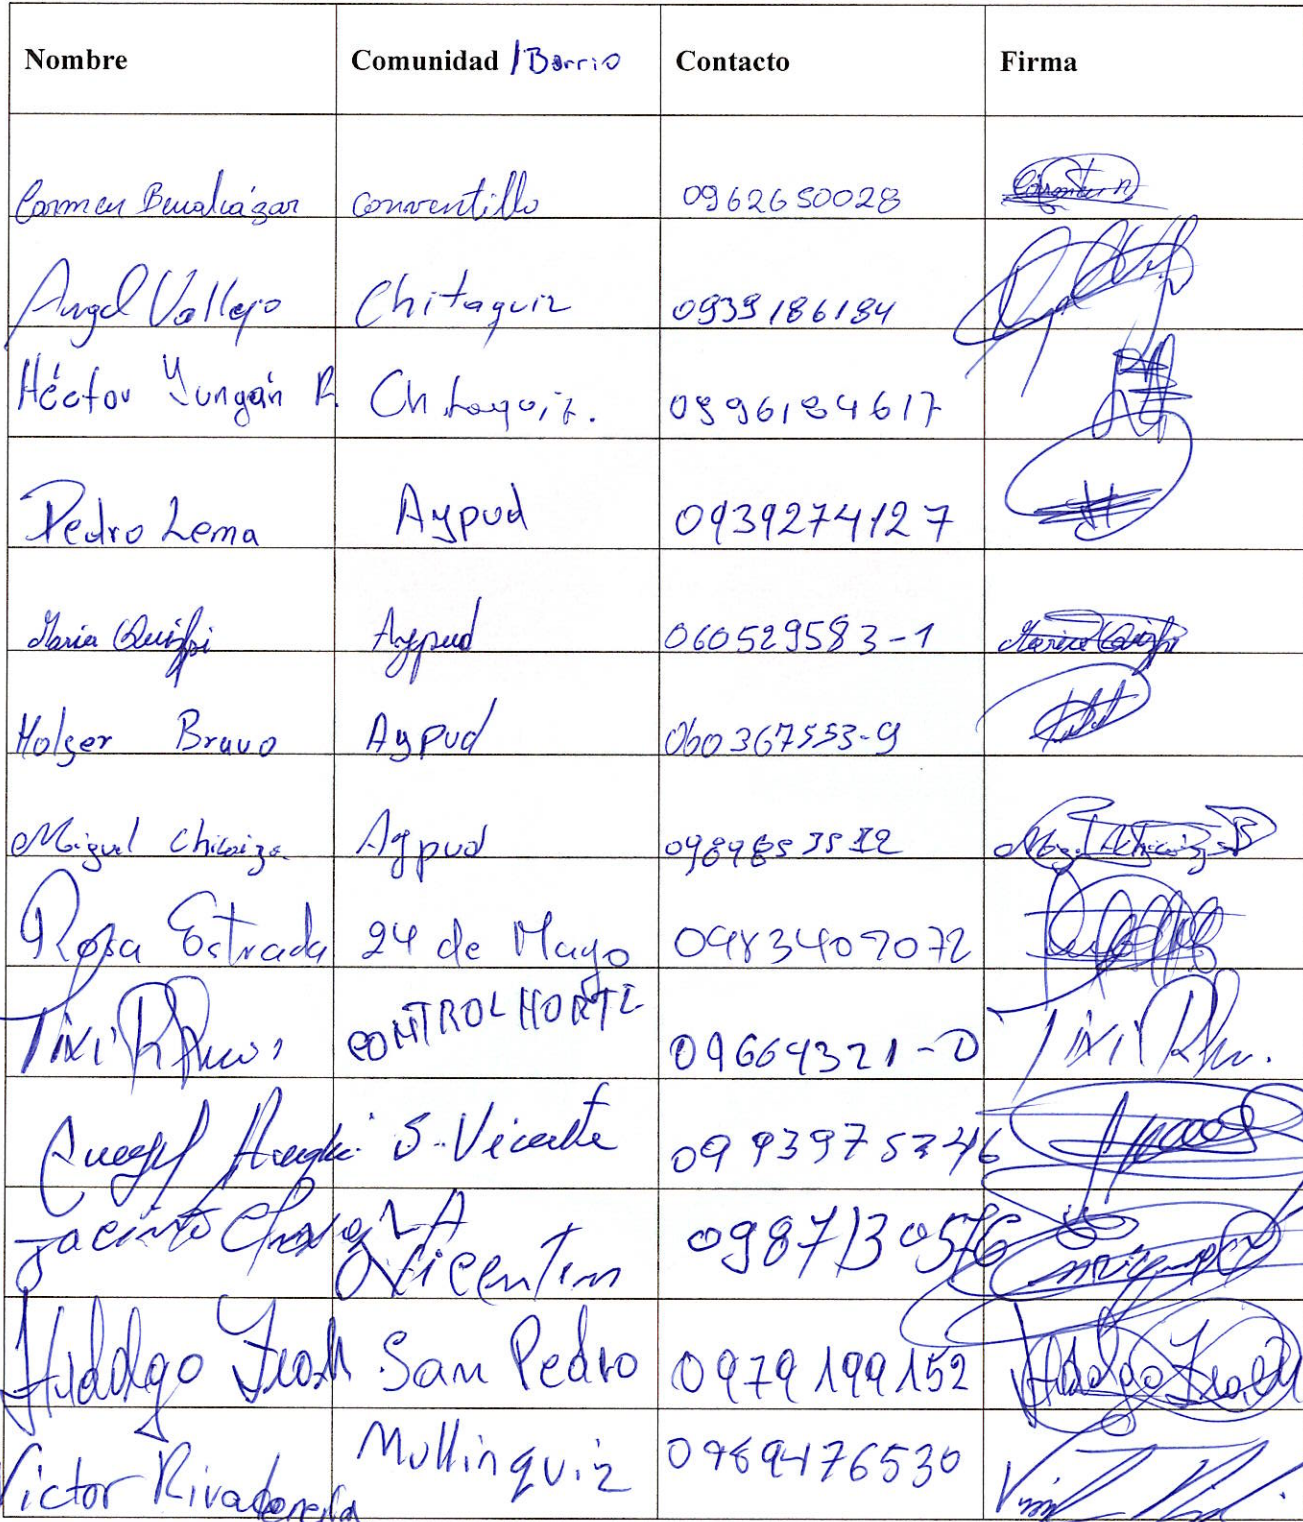 Nombre Comunidad /Barrio Contacto Firma
Carmen Benalcázar conventillo 0962650028 Carmen
Angel Vallejo Chitaquiz 0939186184
Héctor Yungán R. Chitaquiz. 0996194617
Pedro Lema Aypud 0939274127
Maria Quishpi Aypud 060529583-1 Maria Quishpi
Holger Bravo Aypud 060367553-9
Miguel Chicaiza Aypud
Rosa Estrada 24 de Mayo 0983409072
Tixi CONTROL NORTE 09664321-0 Tixi
Angel S. Vicente
Jacinto LA 0987130576
Vicentina
Hidalgo San Pedro 0979199152 Hidalgo
Victor Rivadeneira Mullinquiz 0989476530